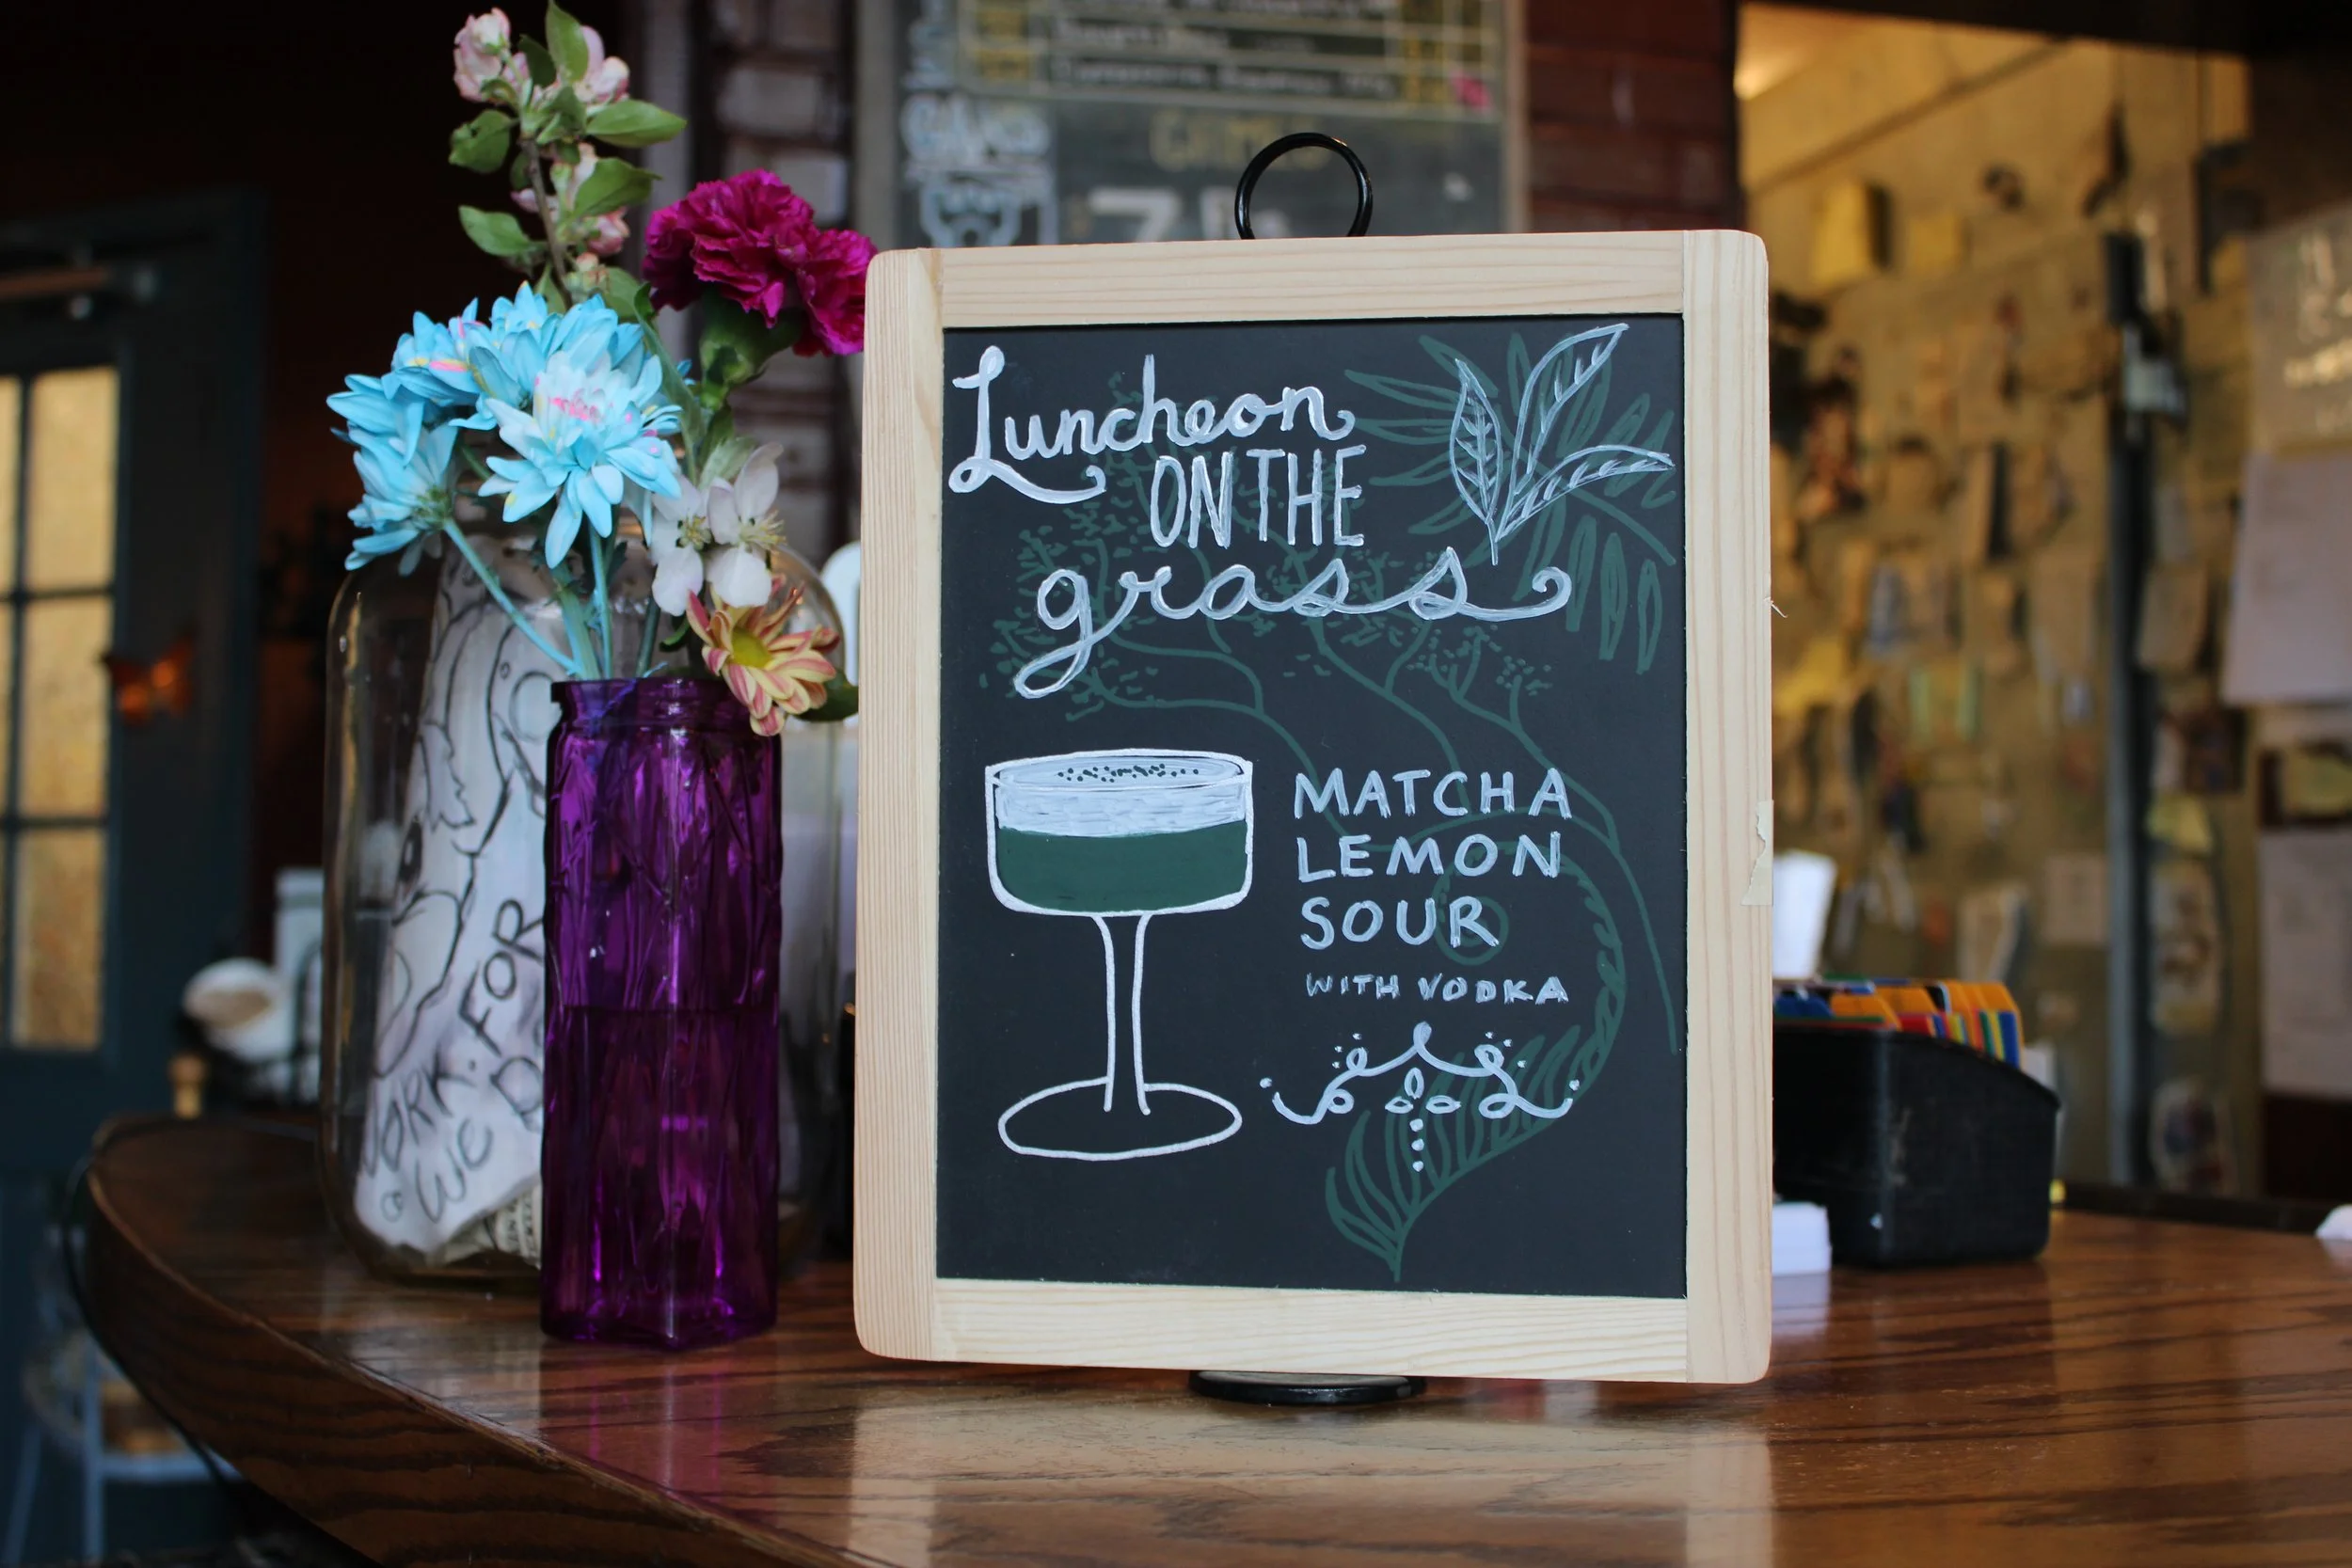 Luncheon
ON THE
grass
MATCHA
LEMON
SOUR
WITH VODKA
WORK. FOR
WE